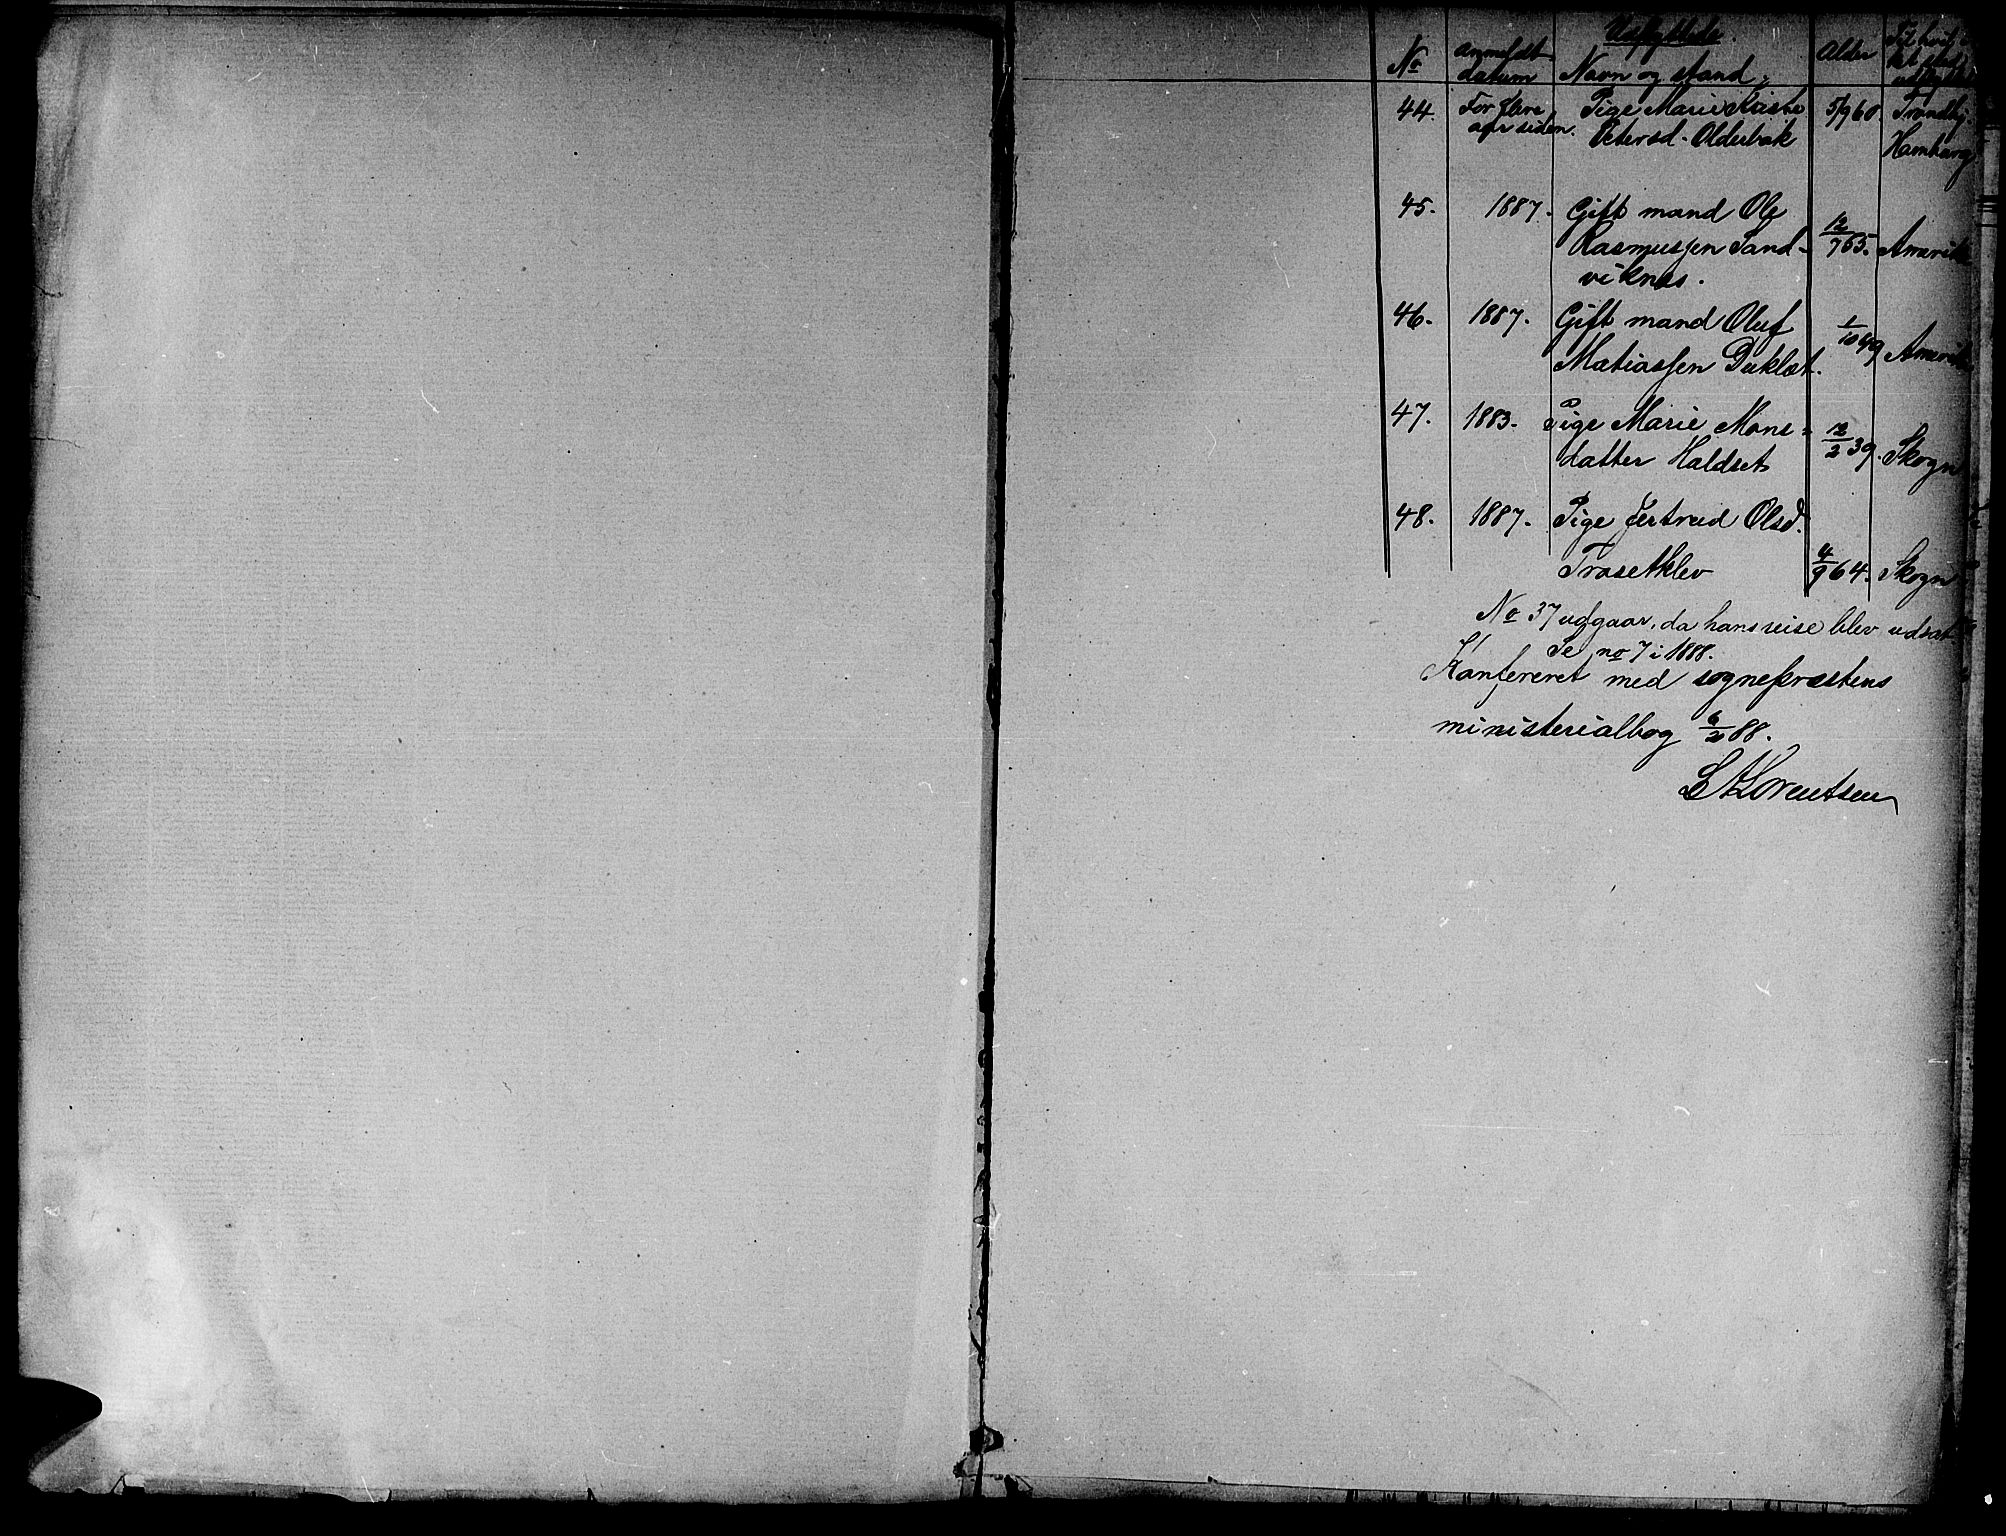 Udflyttede.
No
anmeldt
datum
Navn og stand.
Alder
Til hvil-
ket sted
udflyttet
44. For flere Pige Marie 5/9 60. Trondhj.
aar siden. Petersd. Olderbak Hamburg
45. 1887. Gift mand Ole
Rasmussen Sand- 12/7 65. Amerika
viknes.
46. 1887. Gift mand Oluf 1/10 49 Amerika
Matiassen
47. 1883. Pige Marie Mons- 12/2 39. Skogn
datter Haldset
48. 1887. Pige Jertrud Olsd.
Trasetklev 4/9 64. Skogn
No 37 udgaar, da hans reise blev udsat
Se no 7 i 1888.
Konfereret med sogneprestens
ministerialbog 6/2 88.
Lorentsen